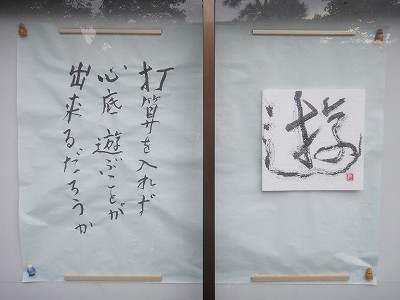 打算を入れず
心底 遊ぶことが
出来るだろうか
遊